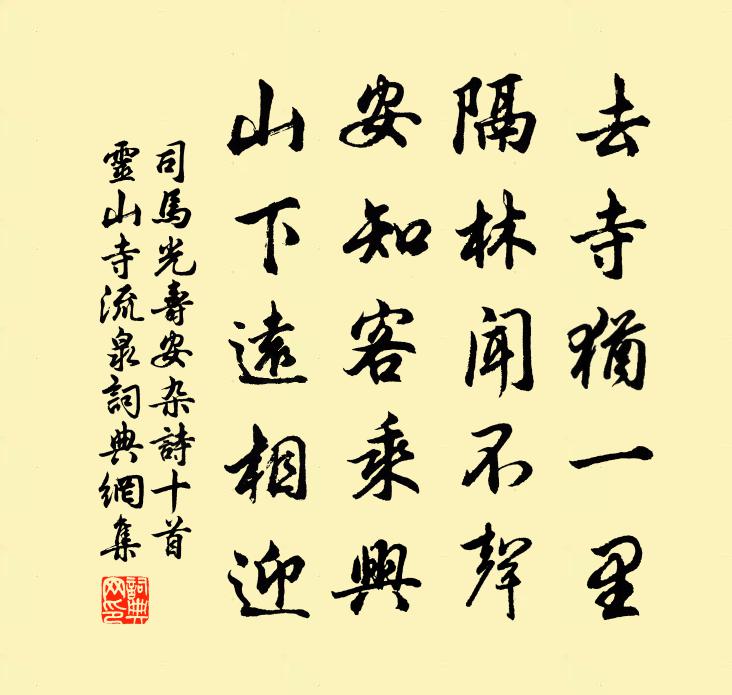 去寺猶一里
隔林聞不聲
安知客乘興
山下遠相迎
司馬光壽安杂詩十首
靈山寺流泉詞典網集
詞典网印